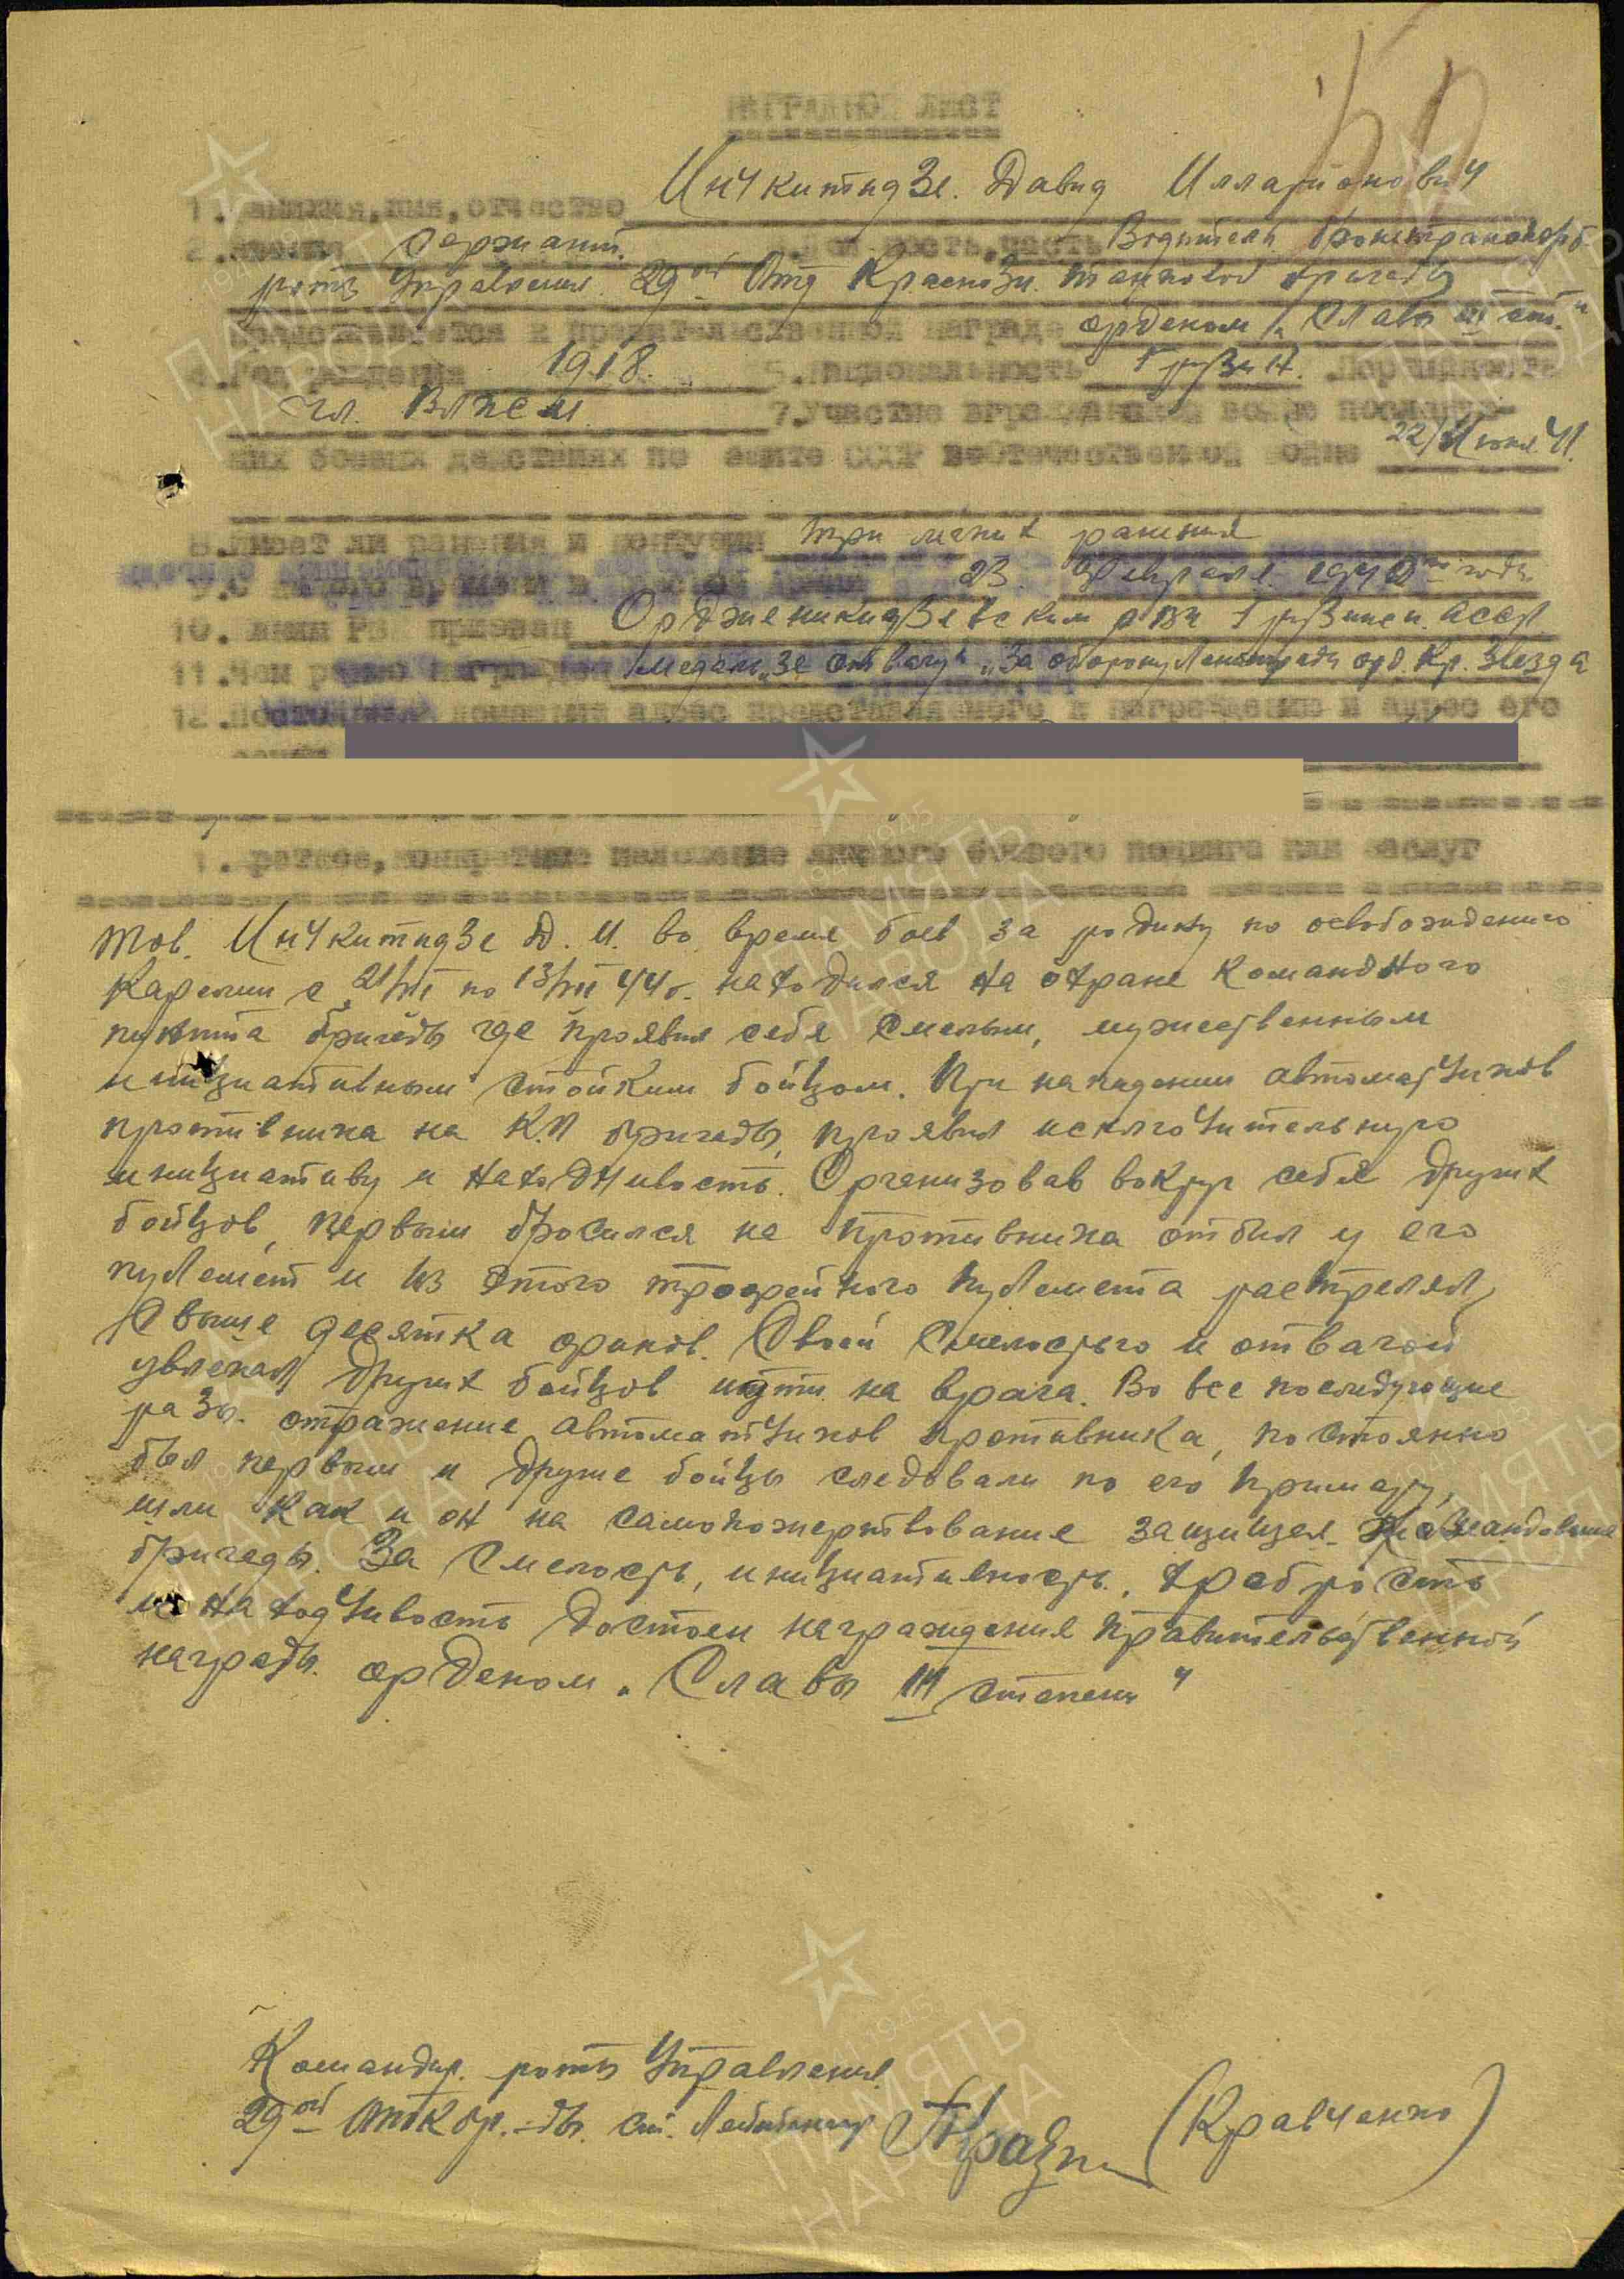 НАГРАДНОЙ ЛИСТ
1. Фамилия, имя, отчество Инчкитидзе. Давид Илларионович
2. Звание Сержант. 3. Должность, часть Водитель бронетранспорт.
роты Управления. 29ой Отд Краснозн. танковой бригады
представляется к правительственной награде орденом „Славы III ст."
4. Год рождения 1918. 5. Национальность Грузин. 6. Партийность
чл. ВЛКСМ. 7. Участие в гражданской войне последую-
щих боевых действиях по защите СССР и в отечественной войне 22/Июня 41.
8. Имеет ли ранения и контузии три легких ранения
9. С какого времени в Красной Армии 23. Февраля. 1940го года.
10. Каким РВК призван Орджоникидзевским рвк Грузинск. АССР
11. Чем ранее награжден медаль „За отвагу" „За оборону Ленинграда орд. Кр. Звезда
12. Постоянный домашний адрес представляемого к награждению и адрес его
семьи
1. Краткое, конкретное изложение личного боевого подвига или заслуг
Тов. Инчкитидзе Д. И. во время боев за родину по освобождению
Карелии с 21/VI по 13/VII 44 г. находился на охране командного
пункта бригады где проявил себя смелым, мужественным
инициативным стойким бойцом. При нападении автоматчиков
противника на К.П бригады, проявил исключительную
инициативу и находчивость. Организовав вокруг себя других
бойцов, первым бросился на противника отбил у его
пулемет и из этого трофейного пулемета растрелял,
свыше десятка финов. Своей смелостью и отвагой
увлекал других бойцов идти на врага. Во все последующие
разы. отражение автоматчиков противника, постоянно
был первым и другие бойцы следовали по его примеру,
шли как и он на самопожертвование защищая командование
бригады. За смелость, инициативность, храбрость
и находчивость достоин награждения правительственной
награды. орденом „Славы III степени"
Командир. роты Управления
29ой отк бр.-ды. ст. Лейтенант (Кравченко)
ПАМЯТЬ НАРОДА
1941-1945